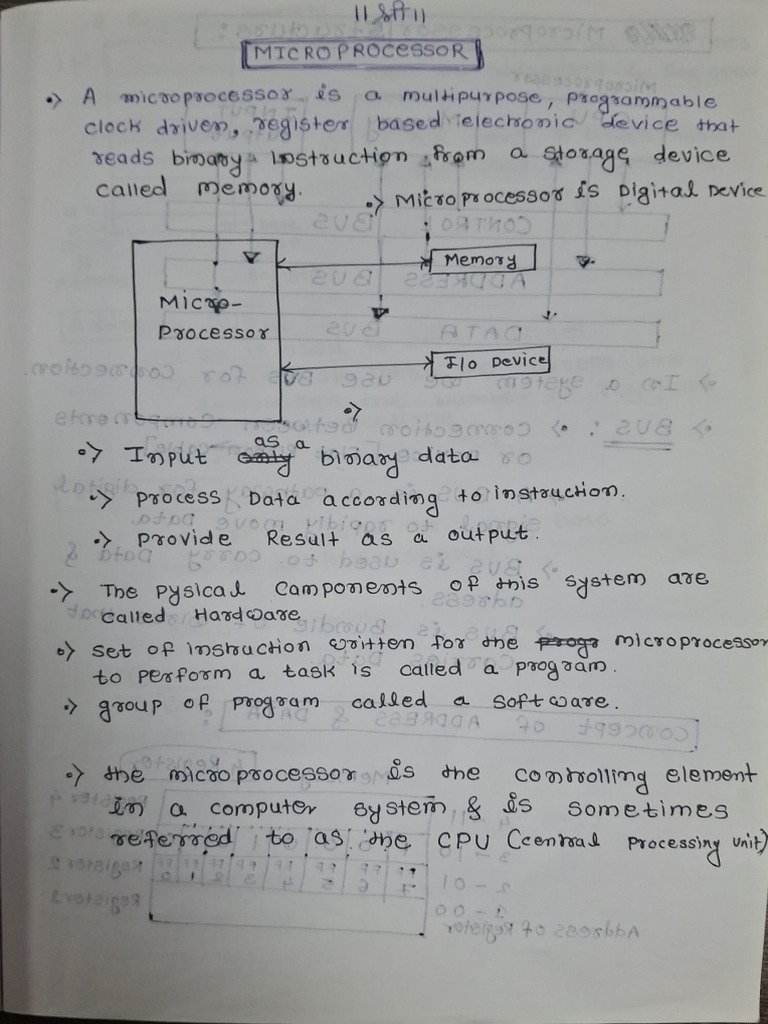 ॥ श्री ॥
MICROPROCESSOR
•> A microprocessor is a multipurpose, programmable
clock driven, register based electronic device that
reads binary instruction from a storage device
called memory.
•> Microprocessor is Digital Device
Memory
Micro-
Processor
I/O Device
•>
•> Input as a binary data
•> process Data according to instruction.
•> provide Result as a output.
•> The pysical components of this system are
called Hardware
•> set of instruction written for the microprocessor
to perform a task is called a program.
•> group of program called a software.
•> the microprocessor is the controlling element
in a computer system & is sometimes
referred to as the CPU (central processing unit)